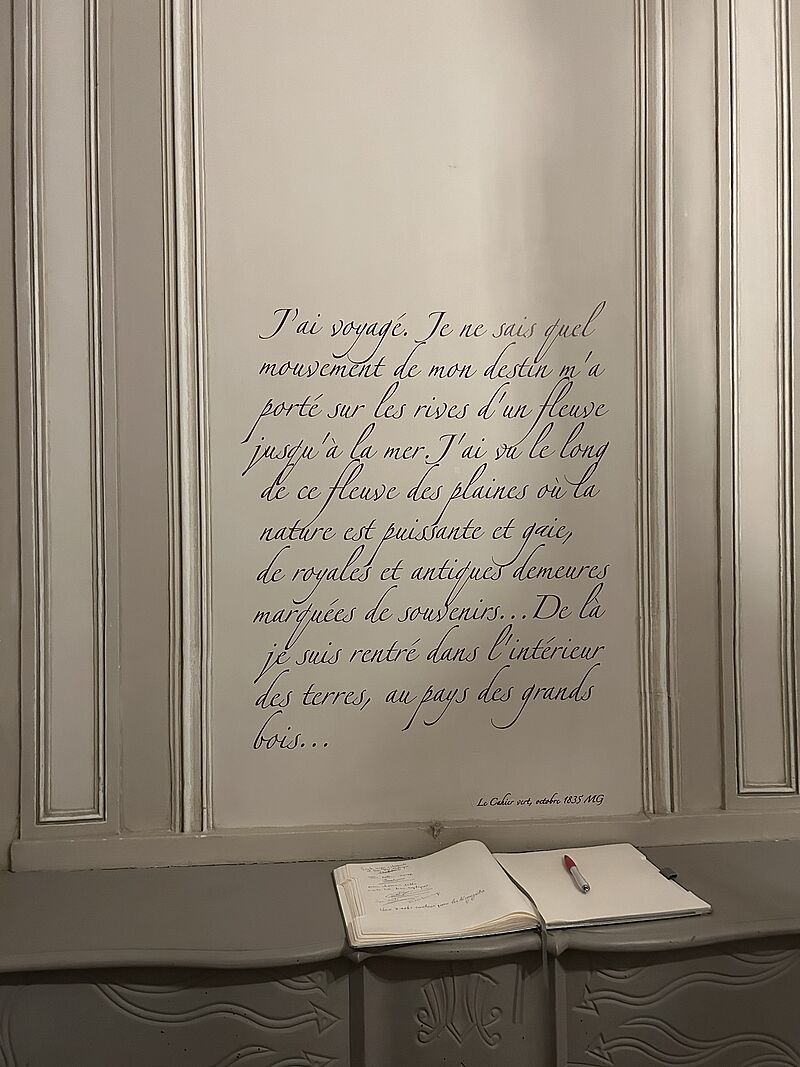 J'ai voyagé. Je ne sais quel
mouvement de mon destin m'a
porté sur les rives d'un fleuve
jusqu'à la mer. J'ai vu le long
de ce fleuve des plaines où la
nature est puissante et gaie,
de royales et antiques demeures
marquées de souvenirs... De là
je suis rentré dans l'intérieur
des terres, au pays des grands
bois...
Le Cahier vert, octobre 1835 MG